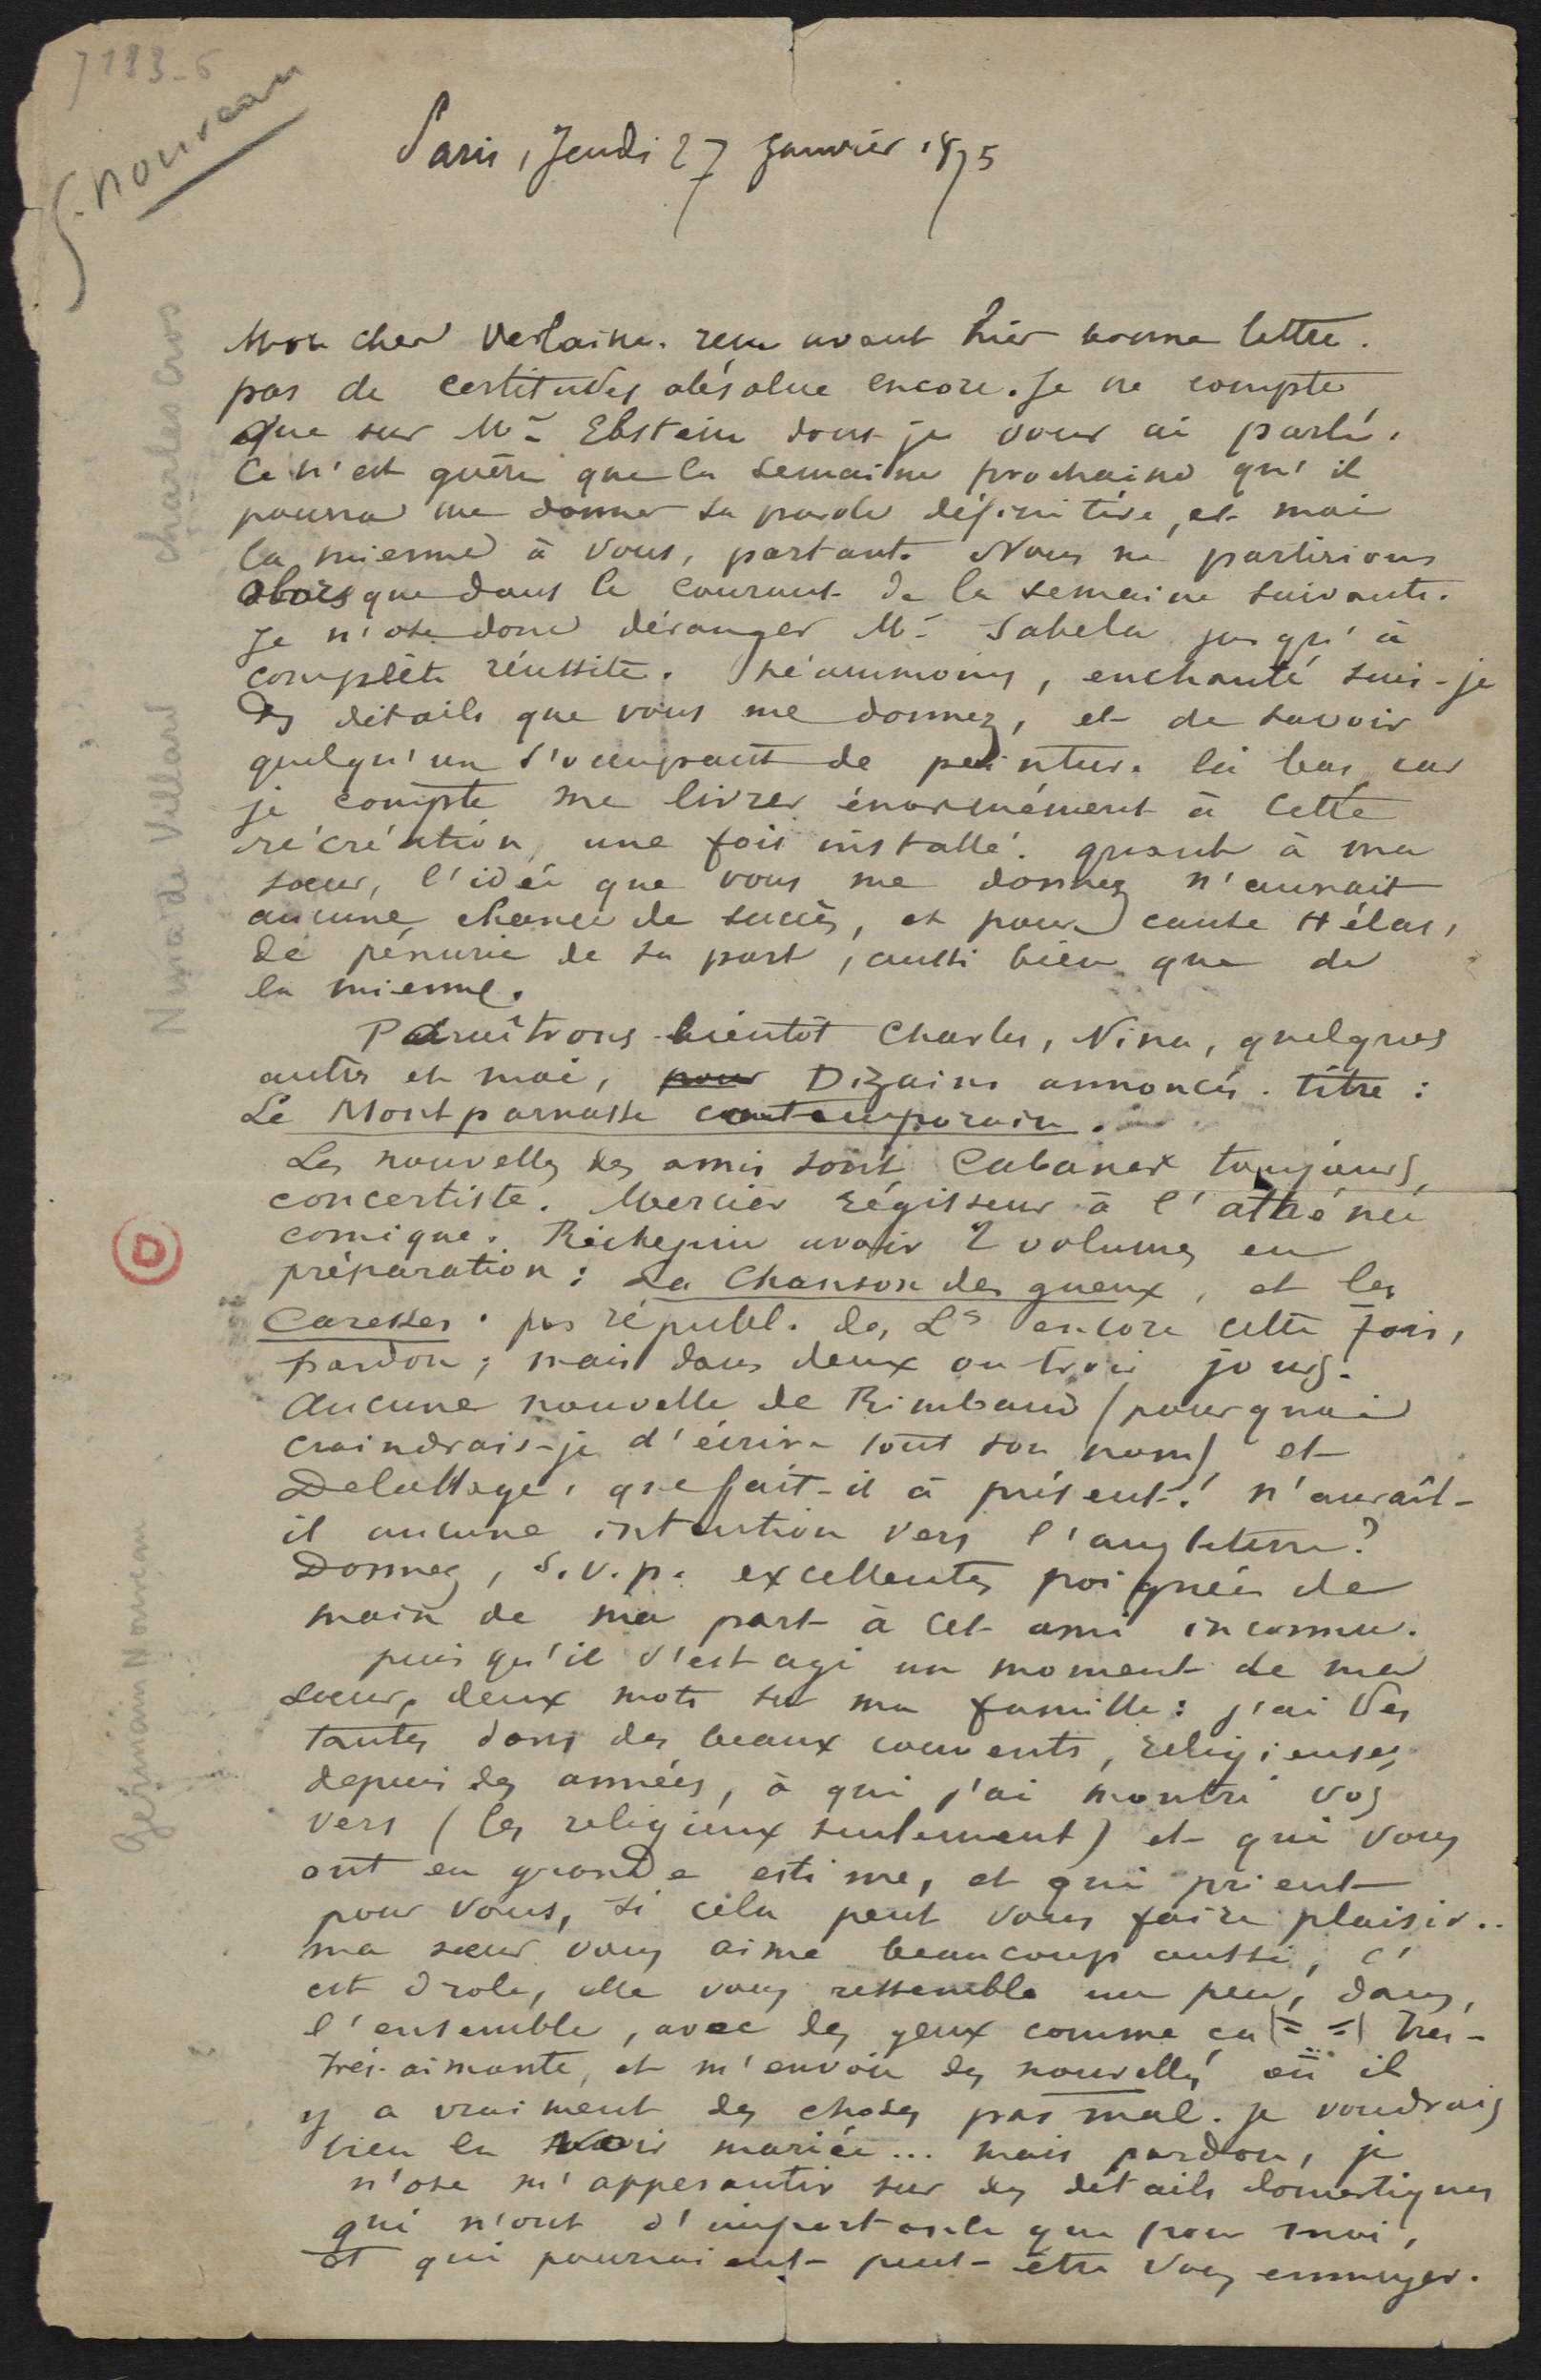 7183-6
G. Nouveau
Paris, Jeudi 27 Janvier 1875
Mon cher Verlaine. reçu avant hier bonne lettre.
pas de certitudes absolue encore. Je ne compte
que sur Mr Ebstein dont je vous ai parlé.
Ce n'est guère que la semaine prochaine qu'il
pourra me donner sa parole définitive, et moi
la mienne à vous, partant. Nous ne partirions
alors que dans le courant de la semaine suivante.
Je n'ose donc déranger Mr Sabela jusqu'à
complète réussite. Néammoins, enchanté suis-je
des détails que vous me donnez, et de savoir
quelqu'un s'occupant de peinture là bas, car
je compte me livrer énormément à cette
récréation, une fois installé. quant à ma
sœur, l'idée que vous me donnez n'aurait
aucune chance de succès, et pour cause Hélas,
de pénurie de sa part, aussi bien que de
la mienne.
Paraîtrons bientôt Charles, Nina, quelques
autres et moi, pour Dizains annoncés. titre :
Le Montparnasse contemporain.
Les nouvelles des amis sont Cabaner toujours
concertiste. Mercier régisseur à l'athénée
comique. Richepin avoir 2 volumes en
préparation : La Chanson des gueux, et les
Caresses. pas républ. des Ls encore cette fois,
pardon ; mais dans deux ou trois jours.
Aucune nouvelle de Rimbaud (pourquoi
craindrais-je d'écrire tout son nom) et
Delahaye, que fait-il à présent ? n'aurait-
il aucune intention vers l'angleterre ?
Donnez, s.v.p. excellentes poignées de
main de ma part à cet ami inconnu.
puisqu'il s'est agi un moment de ma
sœur, deux mots sur ma famille : j'ai des
tantes dans des beaux couvents, religieuses,
depuis des années, à qui j'ai montré vos
vers (les religieux seulement) et qui vous
ont en grande estime, et qui prient
pour vous, si cela peut vous faire plaisir..
ma sœur vous aime beaucoup aussi, c'
est drole, elle vous ressemble un peu, dans,
l'ensemble, avec des yeux comme ça (= =) très-
très-aimante, et m'envoie des nouvelles où il
y a vraiment des choses pas mal. je voudrais
bien la voir mariée... mais pardon, je
n'ose m'appesantir sur des détails domestiques
qui n'ont d'importance que pour moi,
et qui pourraient peut-être vous ennuyer.
Charles Cros
Nina de Villard
D
Germain Nouveau